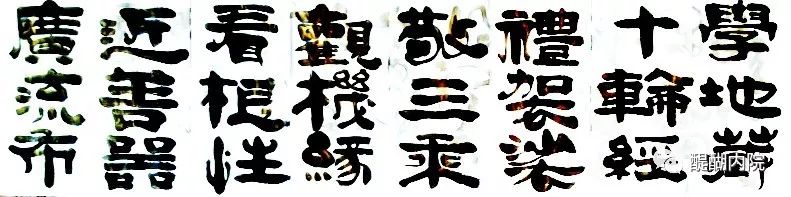 學地藏
十輪經
禮袈裟
敬三乘
觀機緣
看根性
近善器
廣流布
醍醐内院